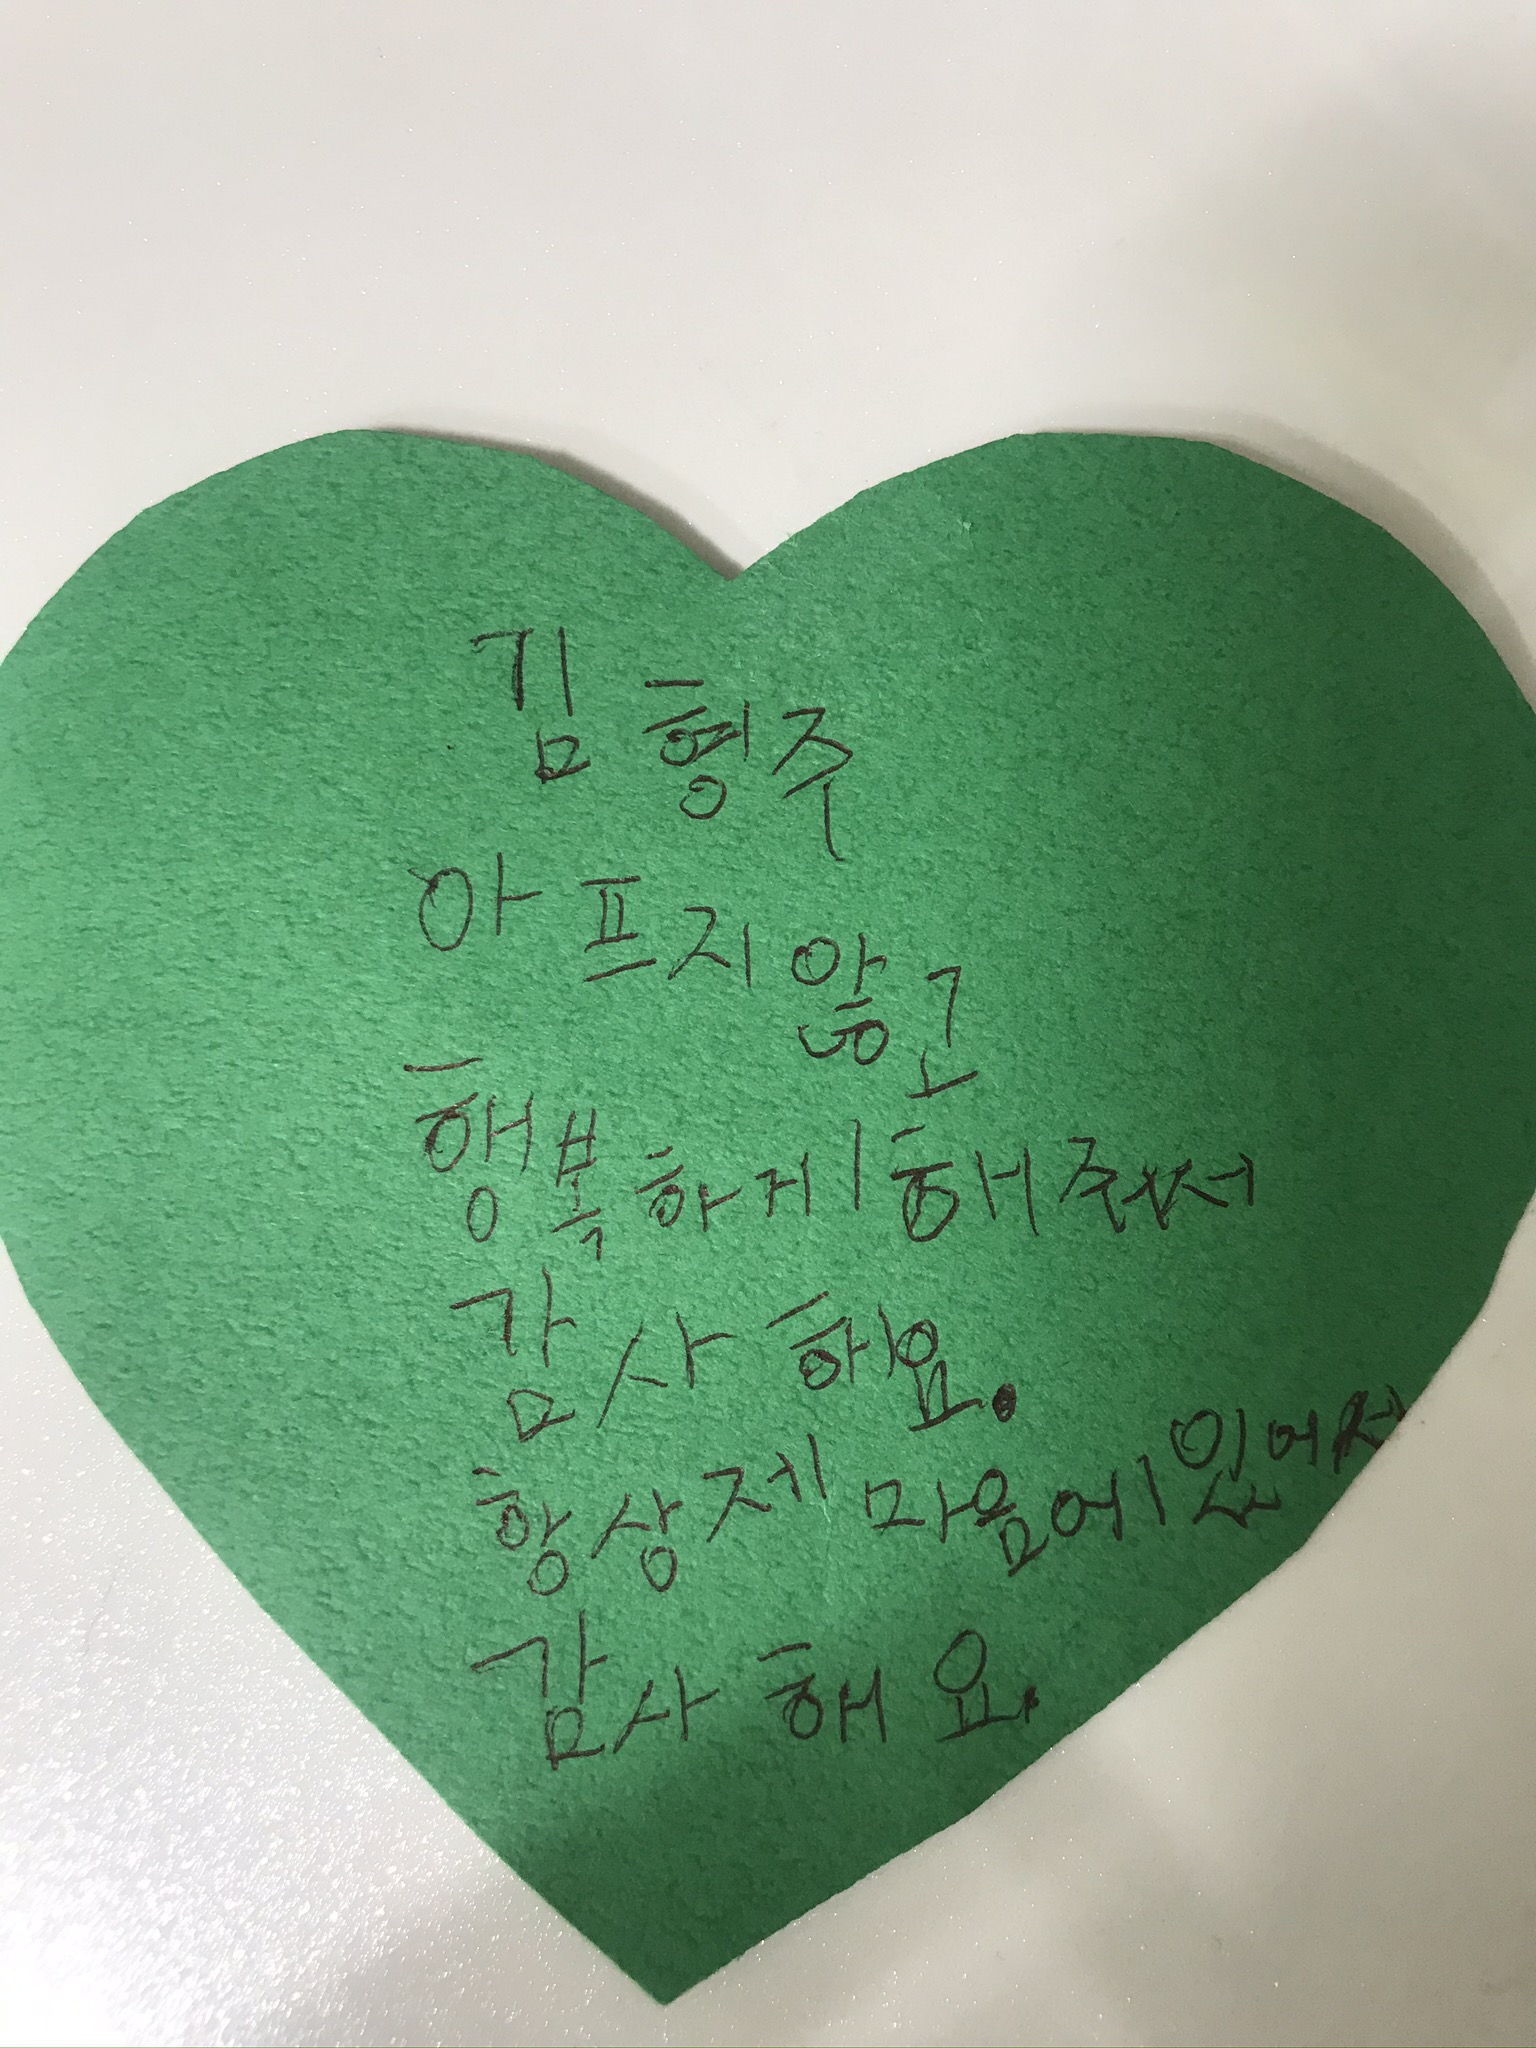 김형주
아프지않고
행복하게해주셔서
감사해요.
항상제마음에있어서
감사해요.